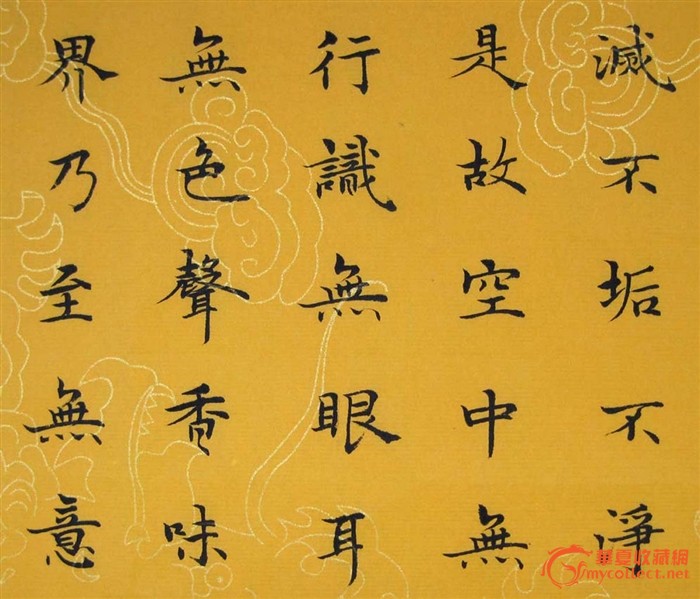 滅不垢不淨
是故空中無
行識無眼耳
無色聲香味
界乃至無意
華夏收藏网
mycollect.net